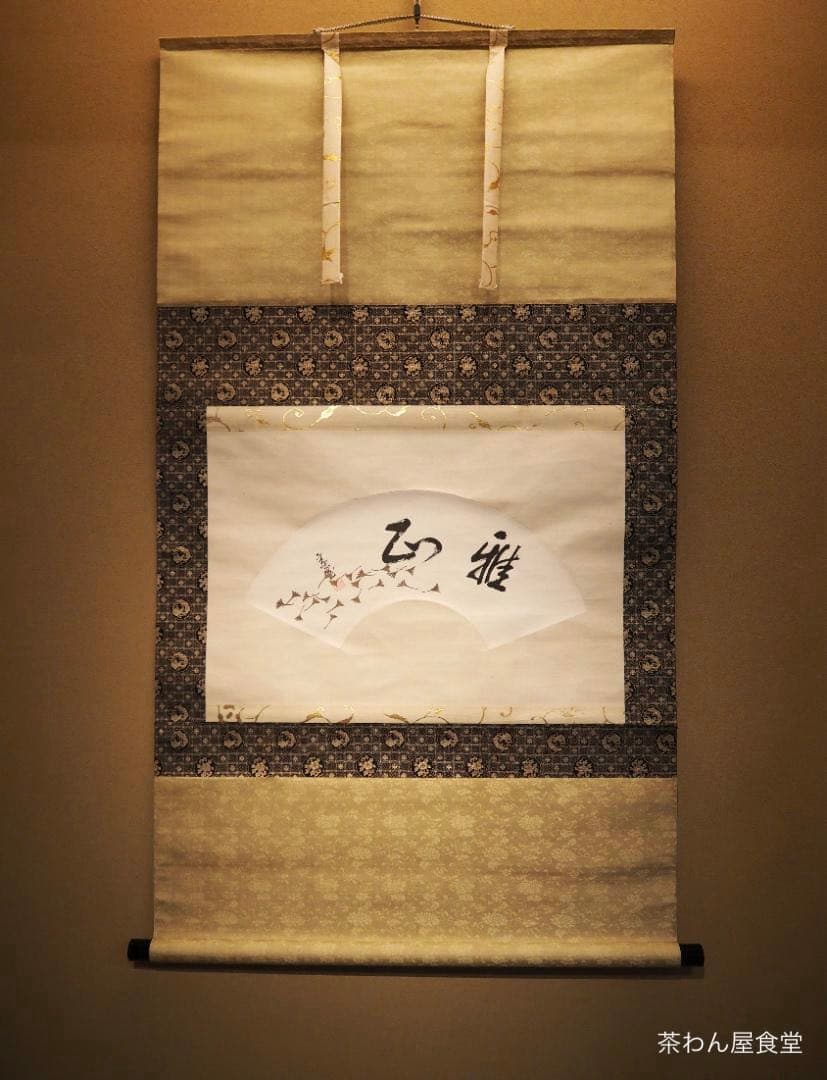 雅正
茶わん屋食堂